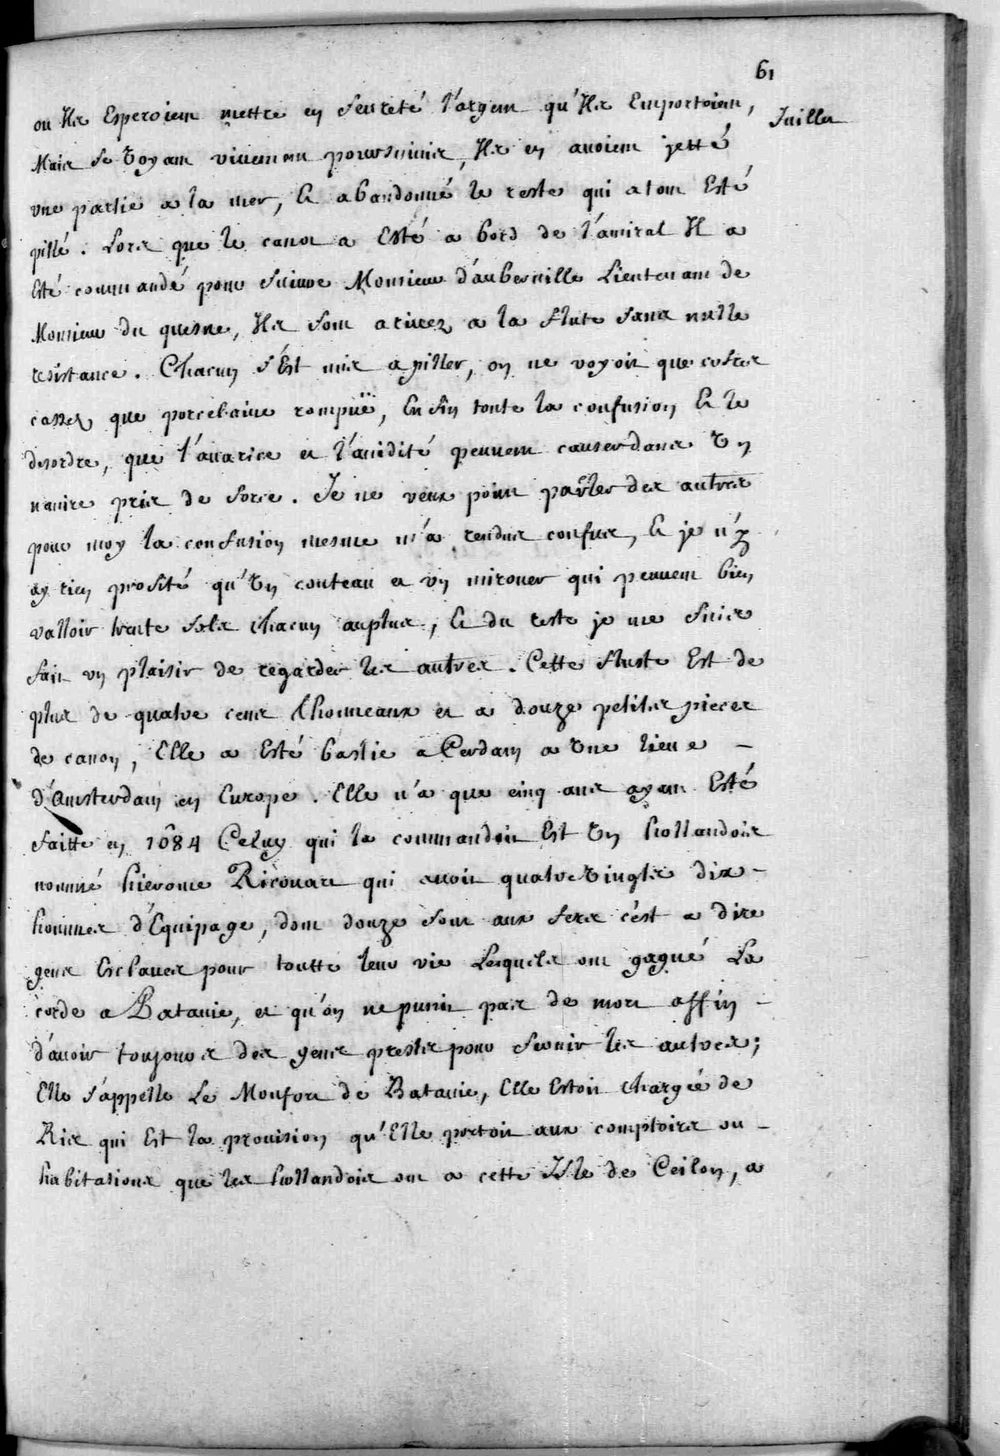 61
Juillet
ou Ils Esperoient mettre en seureté l'argent qu'Ils Emportoient,
Mais se voyant vivement poursuivis, Ils en avoient jetté
vne partie a la mer, Et abandonné le reste qui a tout Esté
pillé. Lors que le canot a Esté a bord de l'amiral Il a
Esté commandé pour suivre Monsieur d'auberville Lieutenant de
Monsieur du quesne, Ils sont arivez a la flute sans nulle
resistance. Chacun s'Est mis a piller, on ne voyoit que cofres
cassez que porcelaine rompuë, Enfin toute la confusion Et le
desordre, que l'auarice et l'auidité peuuent causer dans vn
nauire pris de force. Je ne veux point parler des autres
pour moy la confusion mesme m'a rendus confus, Et je n'y
ay rien profité qu'vn couteau et vn mirouer qui peuuent bien
valloir trente sols chacun au plus, Et du reste je me suis
fait vn plaisir de regarder les autres. Cette fluste Est de
plus de quatre cens thonneaux et a douze petites pieces
de canon, Elle a Esté bastie a Cerdam a vne lieue
d'Amsterdam en Europe. Elle n'a que cinq ans ayant Esté
faitte en 1684 Celuy qui la commandoit Est vn hollandois
nommé hierome Ricouart qui avoit quatre vingts dix
hommes d'Equipage, dont douze sont aux fers c'est a dire
gens Esclaves pour toutte leur vie Lesquels ont gagné La
corde a Batavie, et qu'on ne punit pas de mort affin
d'auoir toujours des gens prests pour seruir les autres;
Elle s'appelle Le Monfort de Batavie, Elle Estoit chargée de
Ris qui Est la prouision qu'Elle portoit aux comptoirs ou
habitations que les hollandois ont a cette Isle de Ceilon, a